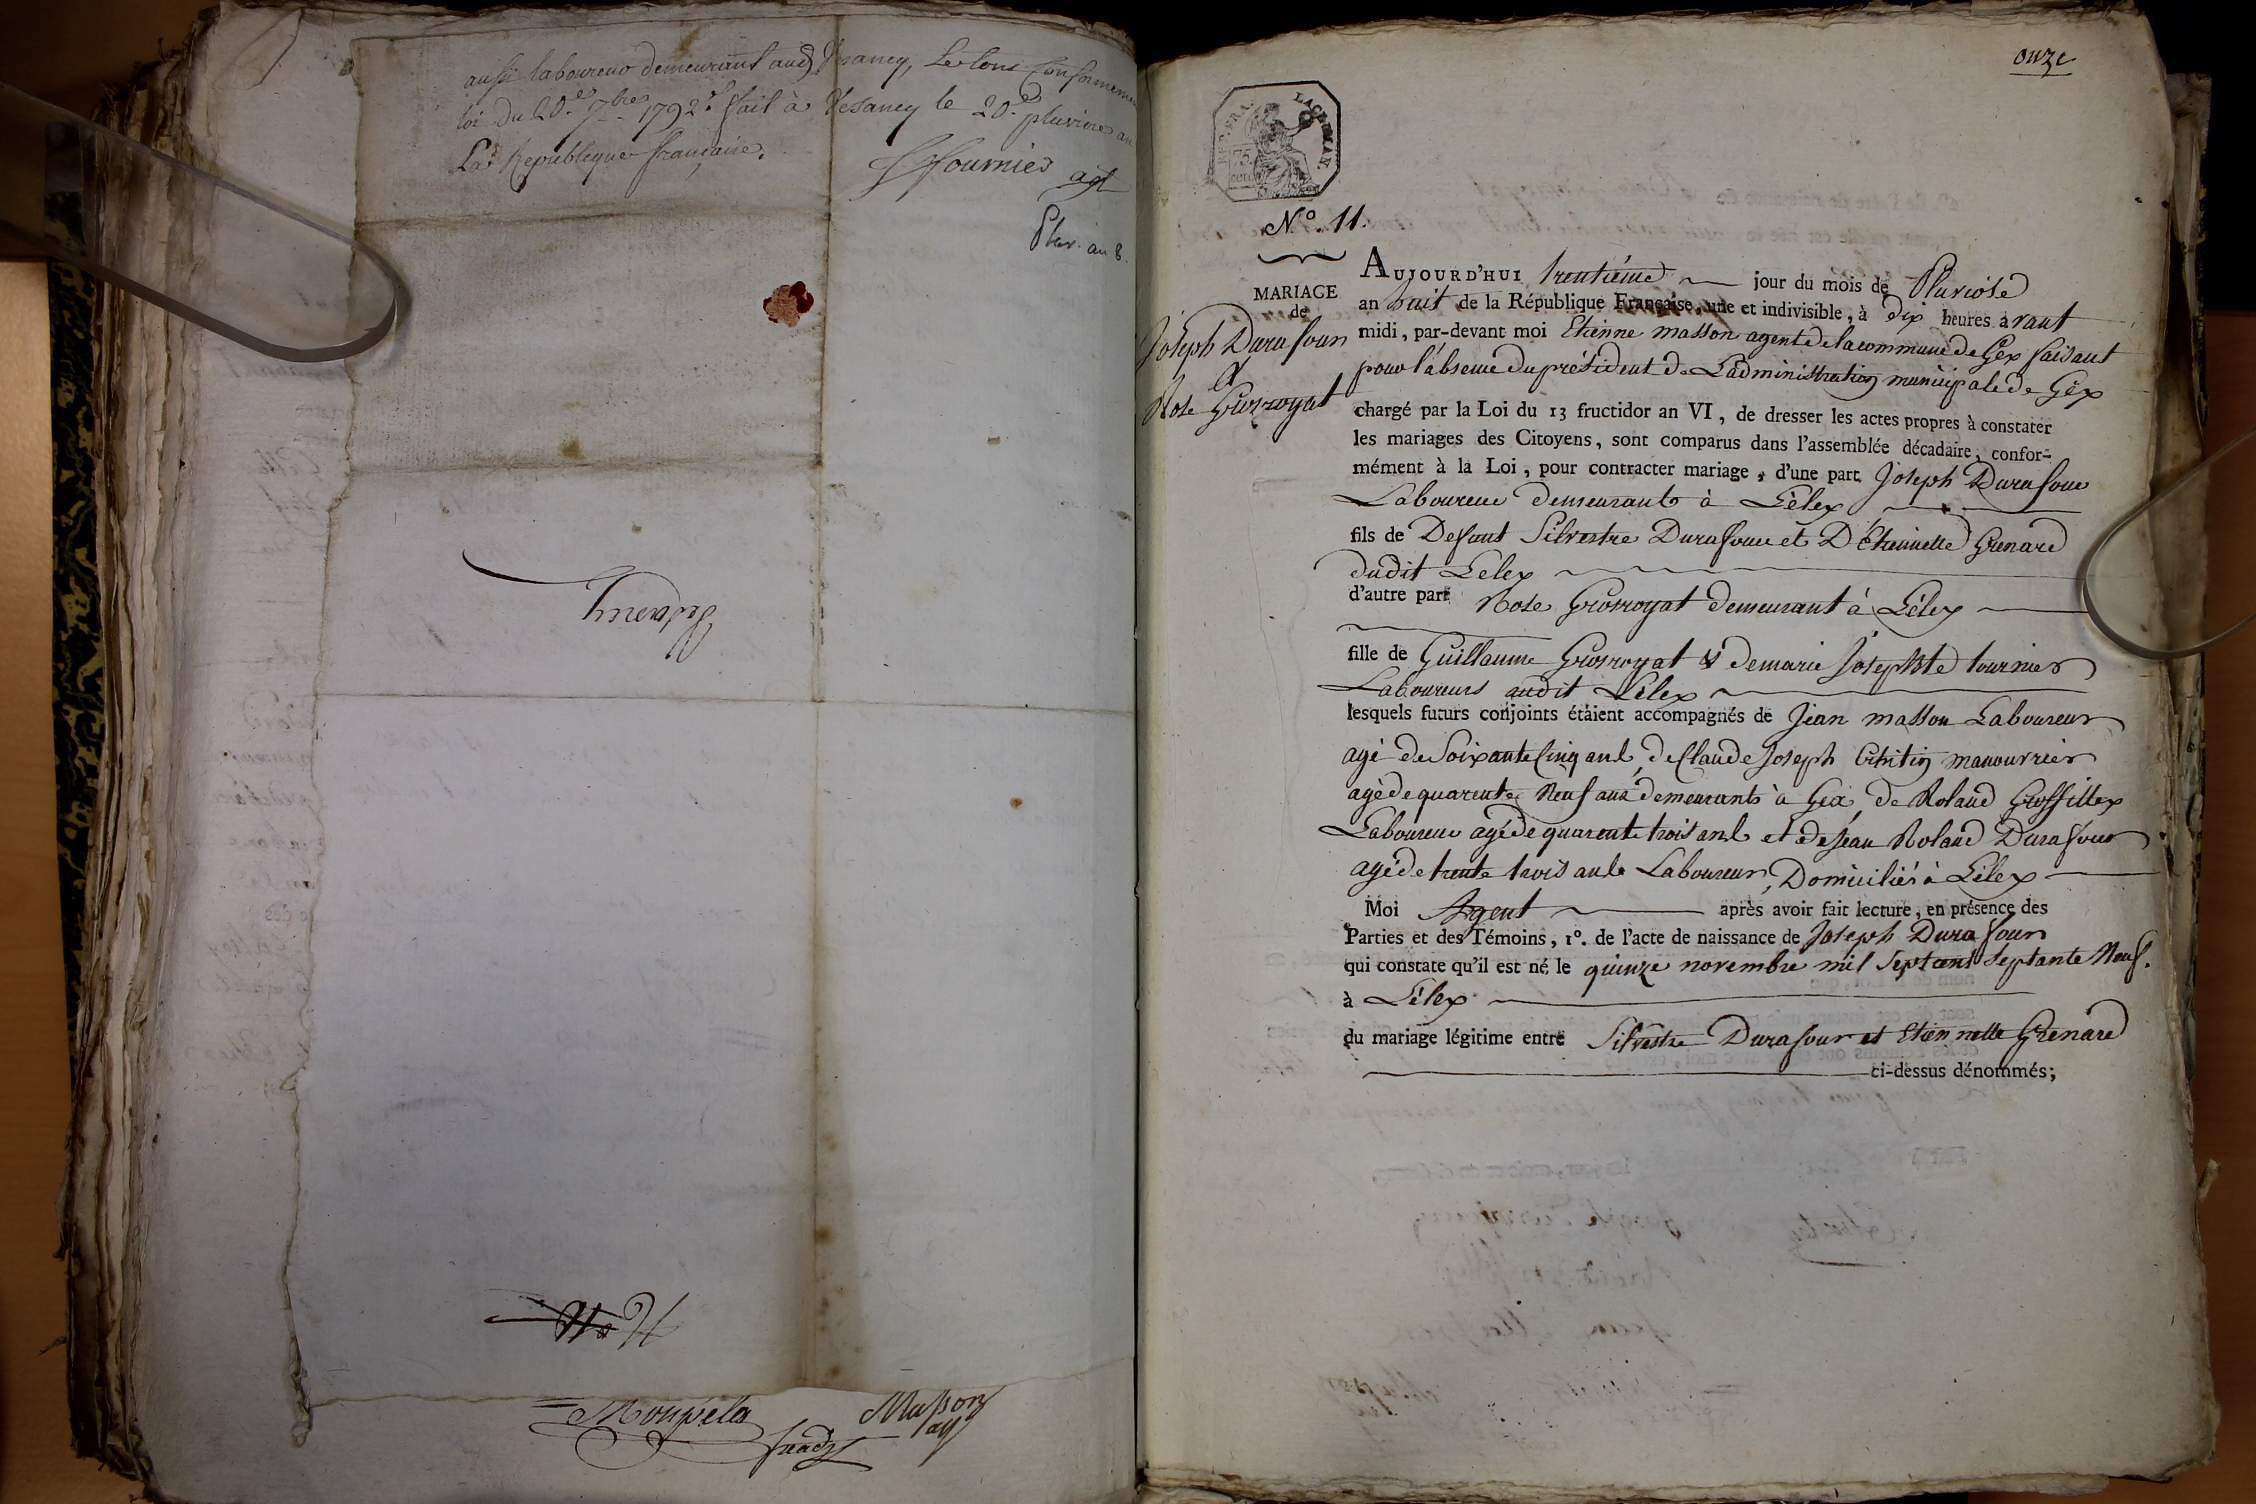 aussi laboureur demeurant aud Vesancy, Le tout Conformement
loi du 20.e 7bre 1792. fait à Vesancy le 20.e pluviose an
La Republique française.
fournier agt
Pluv. an 8.
Vesancy
Monpela
Masson
ag
onze
REP. FRA.
75
CENT
N.º 11.
MARIAGE
de
Joseph Durafour
et
Rose Grosroyat
AUJOURD'HUI trentième jour du mois de Pluviose
an huit de la République Française, une et indivisible, à dix heures avant
midi, par-devant moi Etienne masson agent de la commune de Gex faisant
pour l'absence du président de L'administration municipale de Gex
chargé par la Loi du 13 fructidor an VI, de dresser les actes propres à constater
les mariages des Citoyens, sont comparus dans l'assemblée décadaire, confor-
mément à la Loi, pour contracter mariage, d'une part Joseph Durafour
Laboureur demeurant à Lélex
fils de Defunt Silvestre Durafour et D'Etiennette Grenard
dudit Lélex
d'autre part Rose Grosroyat demeurant à Lélex
fille de Guillaume Grosroyat & de marie Josephte tournier
Laboureurs audit Lélex
lesquels futurs conjoints étaient accompagnés de Jean masson Laboureur
agé de Soixante Cinq ans, de Claude Joseph manouvrier
agé de quarente Neuf ans demeurants à Gex, de Roland Grosfillex
Laboureur agé de quarente trois ans et de Jean Roland Durafour
agé de trente trois ans Laboureur, Domiciliés à Lélex
Moi Agent après avoir fait lecture, en présence des
Parties et des Témoins, 1º. de l'acte de naissance de Joseph Durafour
qui constate qu'il est né le quinze novembre mil Sept cent Septante Neuf.
à Lélex
du mariage légitime entre Silvestre Durafour et Etiennette Grenard
ci-dessus dénommés;